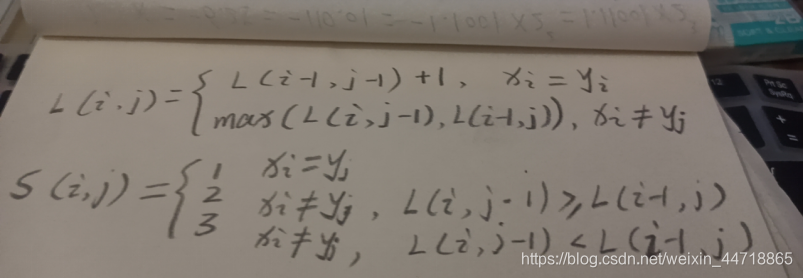 L(i,j)={ L(i-1,j-1)+1, xi=yi
max(L(i,j-1),L(i-1,j)), xi≠yj
S(i,j)={ 1 xi=yj
2 xi≠yj, L(i,j-i)≥L(i-1,j)
3 xi≠yj, L(i,j-1)<L(i-1,j)
https://blog.csdn.net/weixin_44718865